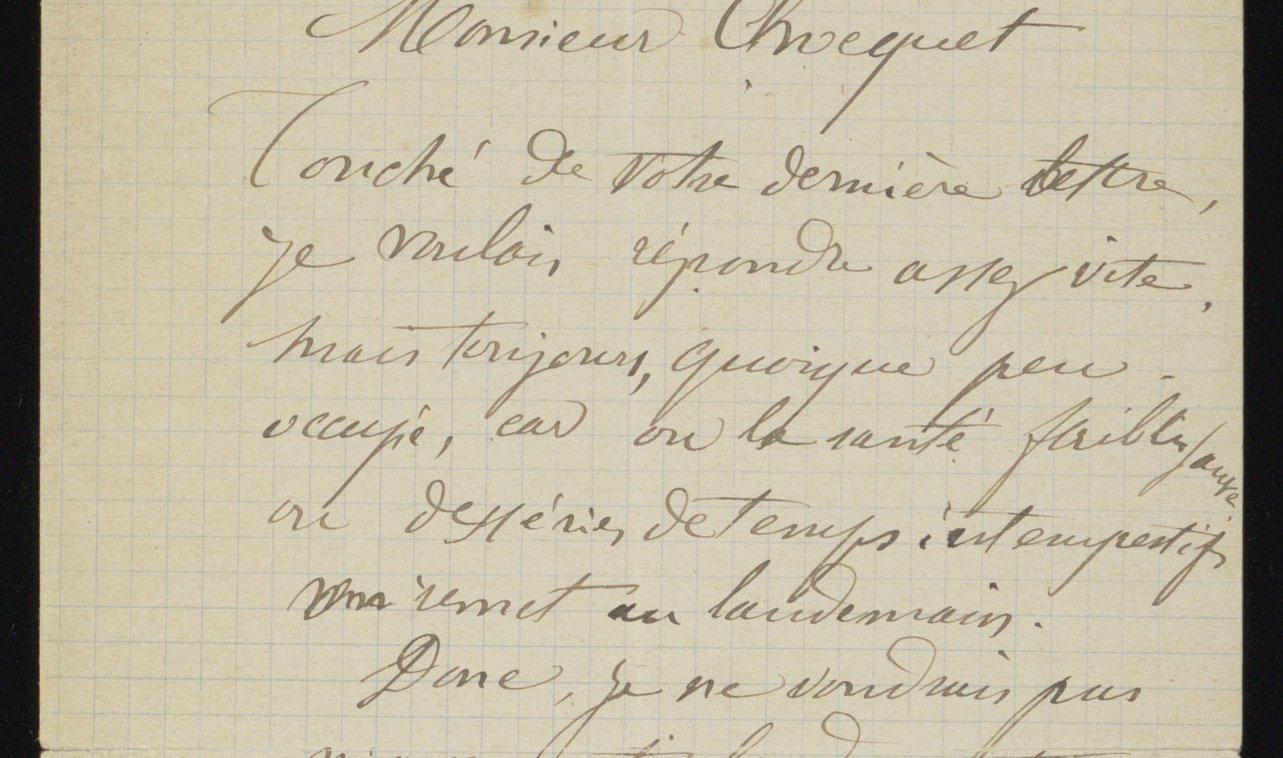 Monsieur Chocquet
Touché de votre dernière lettre,
je voulais répondre assez vite,
mais toujours, quoique peu
occupé, car ou la santé faiblit
ou des séries de temps intempestifs
vous remet au landemain.
Donc, je ne voudrais pas